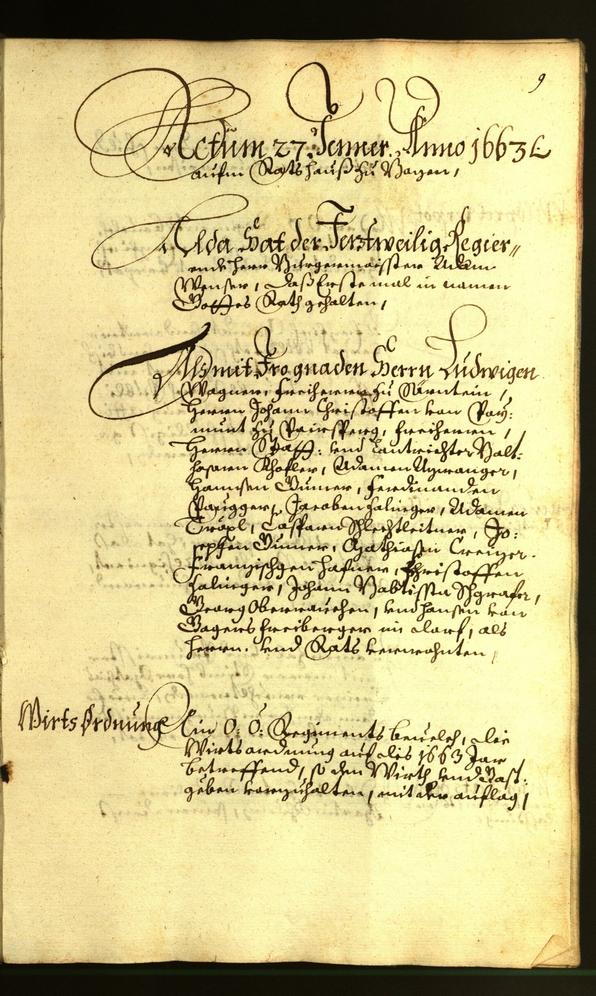 9
Actum 27. Jenner. Anno 1663 &c
aufm Ratshauß zu Bozen,
Alda Hat der Jerztweilig Regier„
endt Herr Burgermaister Adam
Wenser, daß Erste mal in namen
Gottes Rath gehalten,
Alß mit Iro gnaden Herrn Ludwigen
Wagner, Freiherrn zu Särntein,
Herrn Johann Christoffen von Pay:
munt zu Pairsperg, Freiherrn,
Herrn Statt: vnd Lantrichter Balt:
hasarn Khofler, Adamen Ayrwanger,
Hannsen Gumer, Ferdinanden
Jacoben Zalinger, Adamen
Tröpl, Casparn Schlechtleitner, Jo:
sephen Gumer, Mathiasen Creizer.
Franzischgen Hafner, Christoffen
Zalinger, Johann Babtissta Schgrafer,
Georg Oberrauchen, vnd Hansen von
freiberger in dorf, als
Herrn. vnd Rats verwohnten,
Wirts Ordnung
Ein O: Ö: Regiments beuelch, die
Wirtsordnung auf dis 1663 Jar
betreffend, so den Wirth vnd Gast:
geben vorzuhalten, mit der auflag,